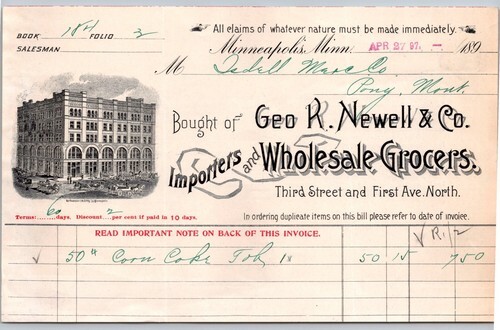 All claims of whatever nature must be made immediately.
BOOK 184 FOLIO 2
SALESMAN
Minneapolis, Minn. APR 27 97 189
M Isdell Merc Co
Pony, Mont.
Bought of Geo R. Newell & Co.
Importers and Wholesale Grocers.
Third Street and First Ave. North.
Terms: 60 days. Discount 2 per cent if paid in 10 days.
In ordering duplicate items on this bill please refer to date of invoice.
READ IMPORTANT NOTE ON BACK OF THIS INVOICE.
50# Corn Cake Tob 50 15 7 50